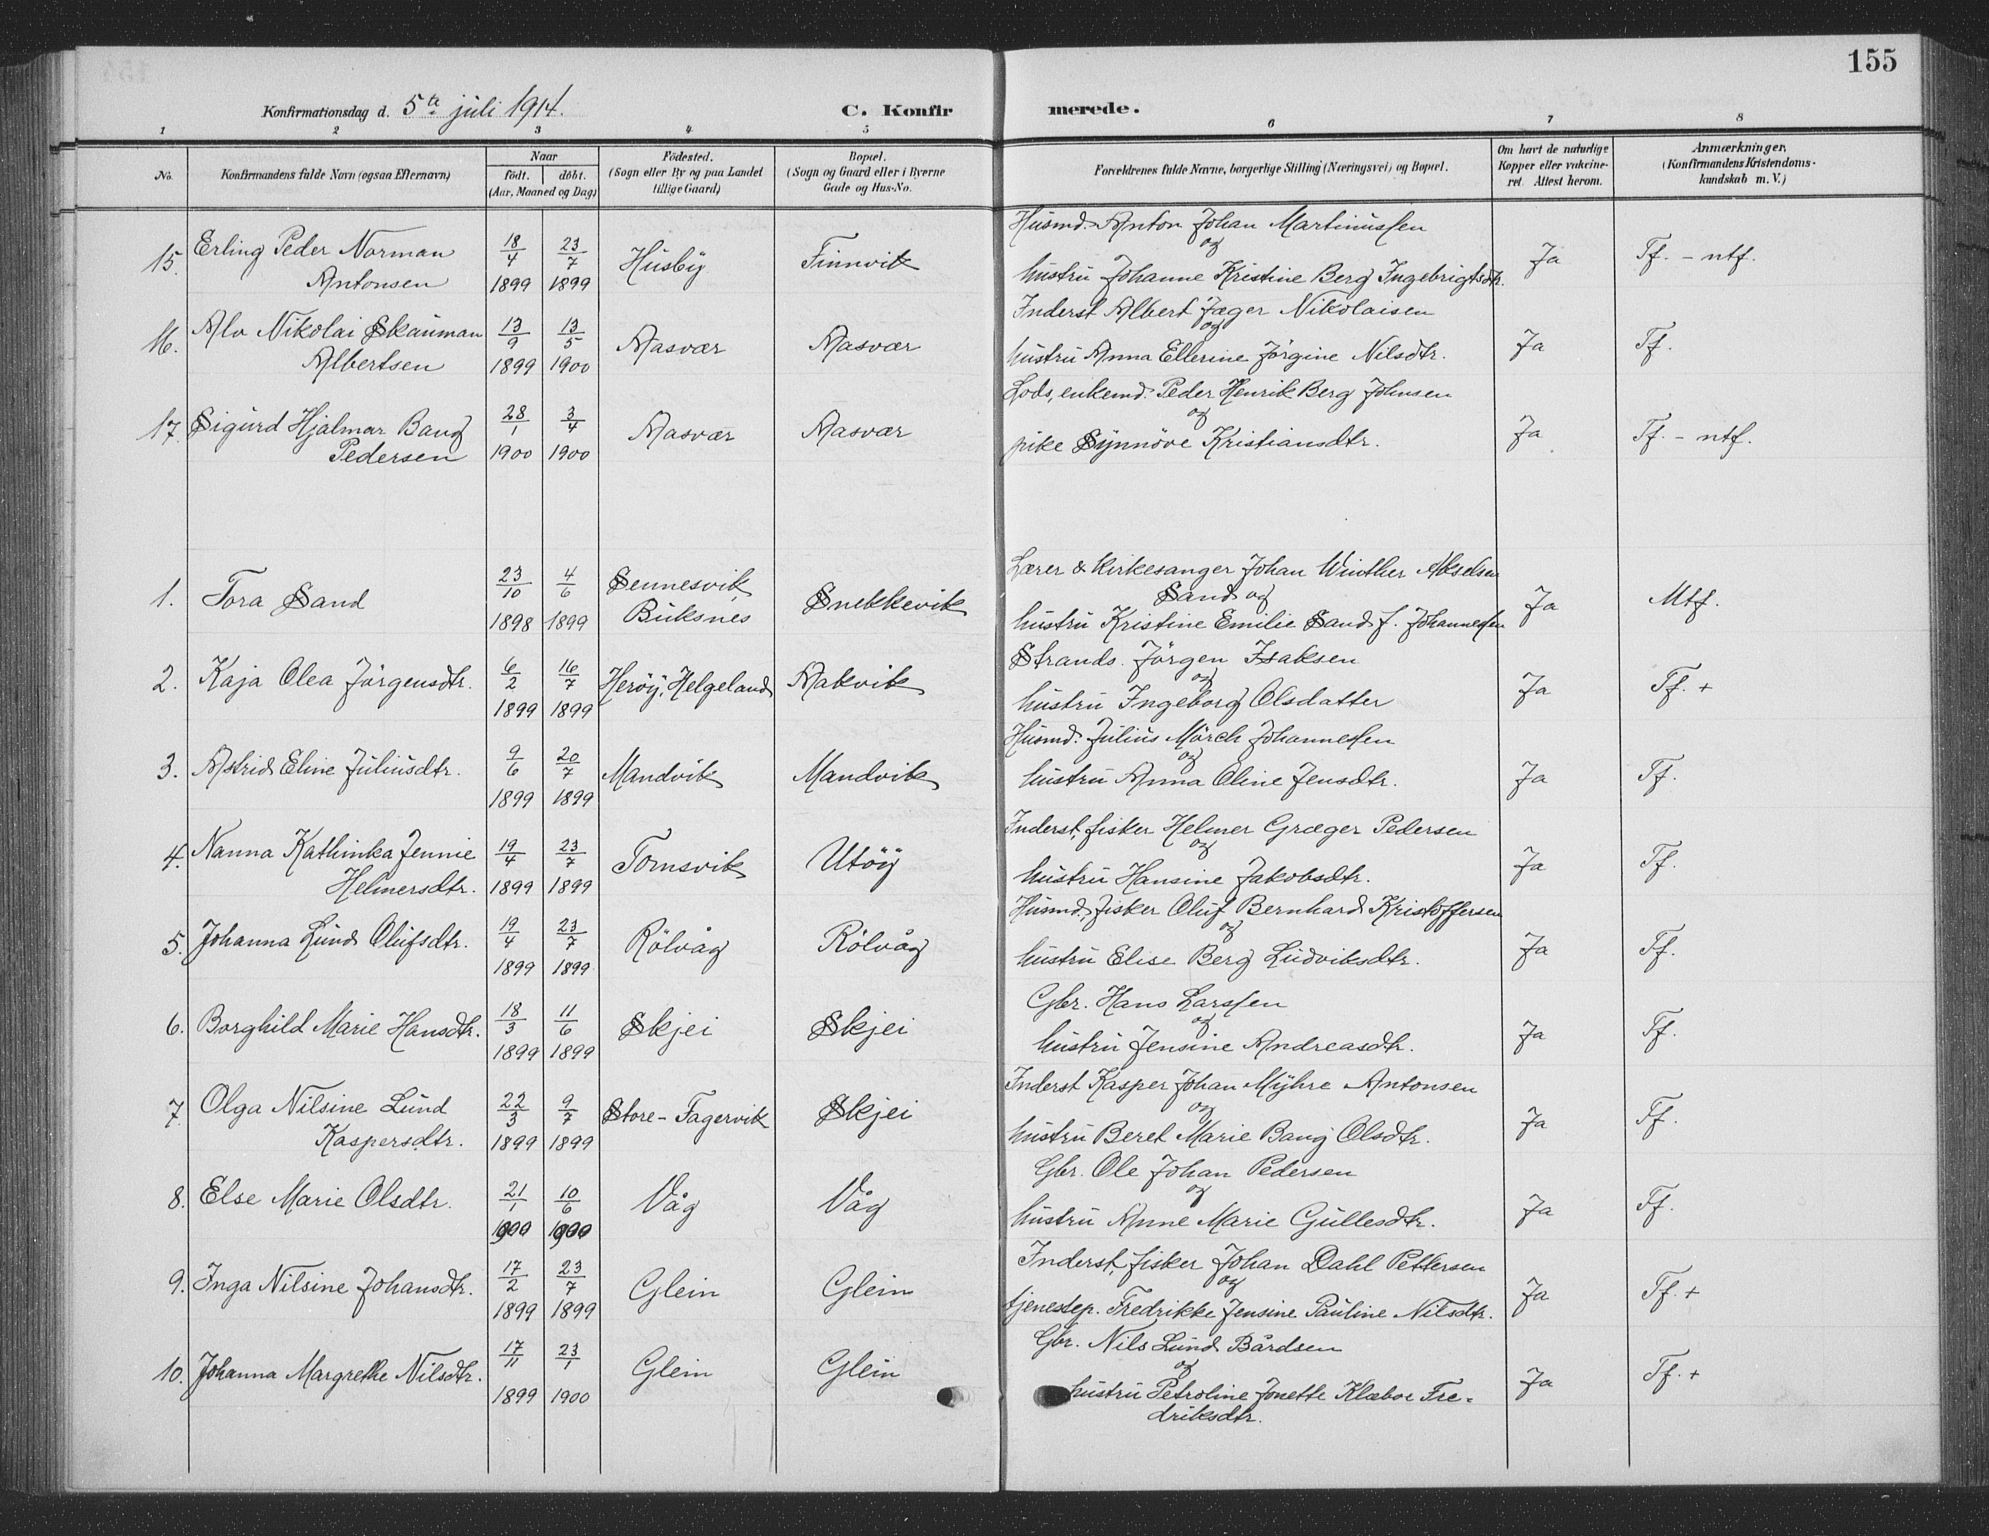 155
Konfirmationsdag d. 5te juli 1914. C. Konfirmerede.
1 2 3 4 5 6 7 8
No. Konfirmandens fulde Navn (ogsaa Efternavn) Naar födt. döbt. (Aar, Maaned og Dag) Födested. (Sogn eller By og paa Landet tillige Gaard) Bopæl. (Sogn og Gaard eller i Byerne Gade og Hus-No. Forældrenes fulde Navne, borgerlige Stilling (Næringsvei) og Bopæl. Om havt de naturlige Kopper eller vakcineret. Attest herom. Anmærkninger. (Konfirmandens Kristendomskundskab m. V.)
Husmd. Anton Johan Martinussen
15. Erling Peder Norman 18/4 23/7 Husby Finnvik og Ja Tf. - ntf.
Antonsen 1899 1899 hustru Johanne Kristine Berg Ingebrigtsdtr.
Inderst Albert Jæger Nikolaisen
16. Alv Nikolai Skauman 13/9 13/5 Aasvær Aasvær og Ja Tf.
Albertsen 1899 1900 hustru Anna Ellerine Jörgine Nilsdtr.
Lods, enkemd. Peder Henrik Berg Johnsen
17. Sigurd Hjalmar Bang 28/1 3/4 Aasvær Aasvær og Ja Tf. - ntf.
Pedersen 1900 1900 pike Synnöve Kristiansdtr.
Lærer & Kirkesanger Johan Winther Akselsen
1. Tora Sand 23/10 4/6 Sennesvik Snekkevik Sand og Ja Mtf.
1898 1899 Buksnes hustru Kristine Emilie Sand f. Johannessen
Strands. Jörgen Isaksen
2. Kaja Olea Jörgensdtr. 6/2 16/7 Heröy, Helgeland Aakvik og Ja Tf. +
1899 1899 hustru Ingeborg Olsdatter
Husmd. Julius Mörch Johannessen
3. Astrid Eline Juliusdtr. 9/6 20/7 Mandvik Mandvik og Ja Tf.
1899 1899 hustru Anna Oline Jensdtr.
Inderst, fisker Helmer Græger Pedersen
4. Nanna Kathinka Jennie 19/4 23/7 Tomsvik Utöy og Ja Tf.
Helmersdtr. 1899 1899 hustru Hansine Jakobsdtr.
Husmd., fisker Oluf Bernhard Kristoffersen
5. Johanna Lund Olufsdtr. 19/4 23/7 Rölvåg Rölvåg og Ja Tf.
1899 1899 hustru Elise Berg Ludviksdtr.
Gbr. Hans Larssen
6. Borghild Marie Hansdtr. 18/3 11/6 Skjei Skjei og Ja Tf.
1899 1899 hustru Jensine Andreasdtr.
Inderst Kasper Johan Myhre Antonsen
7. Olga Nilsine Lund 22/3 9/7 Store-Fagervik Skjei og Ja Tf.
Kaspersdtr. 1899 1899 hustru Beret Marie Bang Olsdtr.
Gbr. Ole Johan Pedersen
8. Else Marie Olsdtr. 21/1 10/6 Våg Våg og Ja Tf.
1900 1900 hustru Anne Marie Gullesdtr.
Inderst, fisker Johan Dahl Pettersen
9. Inga Nilsine Johansdtr. 17/2 23/7 Glein Glein og Ja Tf. +
1899 1899 tjenestep. Fredrikke Jensine Pauline Nilsdtr.
Gbr. Nils Lund Bårdsen
10. Johanna Margrethe Nilsdtr. 17/11 23/1 Glein Glein og Ja Tf. +
1899 1900 hustru Petroline Jonette Klæboe Fre-
driksdtr.